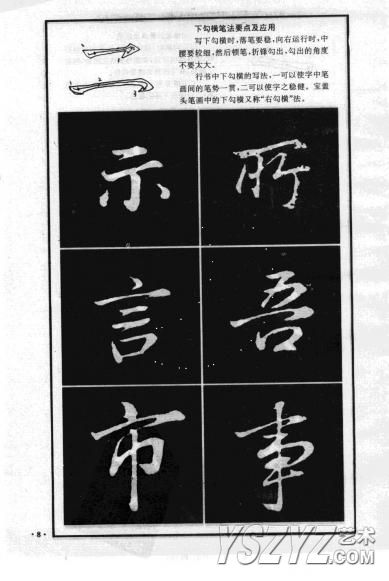 下勾横笔法要点及应用
写下勾横时,落笔要稳,向右运行时,中
腰要较细,然后顿笔,折锋勾出,勾出的角度
不要太大。
行书中下勾横的写法,一可以使字中笔
画间的笔势一贯,二可以使字之稳健。宝盖
头笔画中的下勾横又称“右勾横”法。
示 所
言 吾
市 事
·8·
YSZYZ艺术
.COM